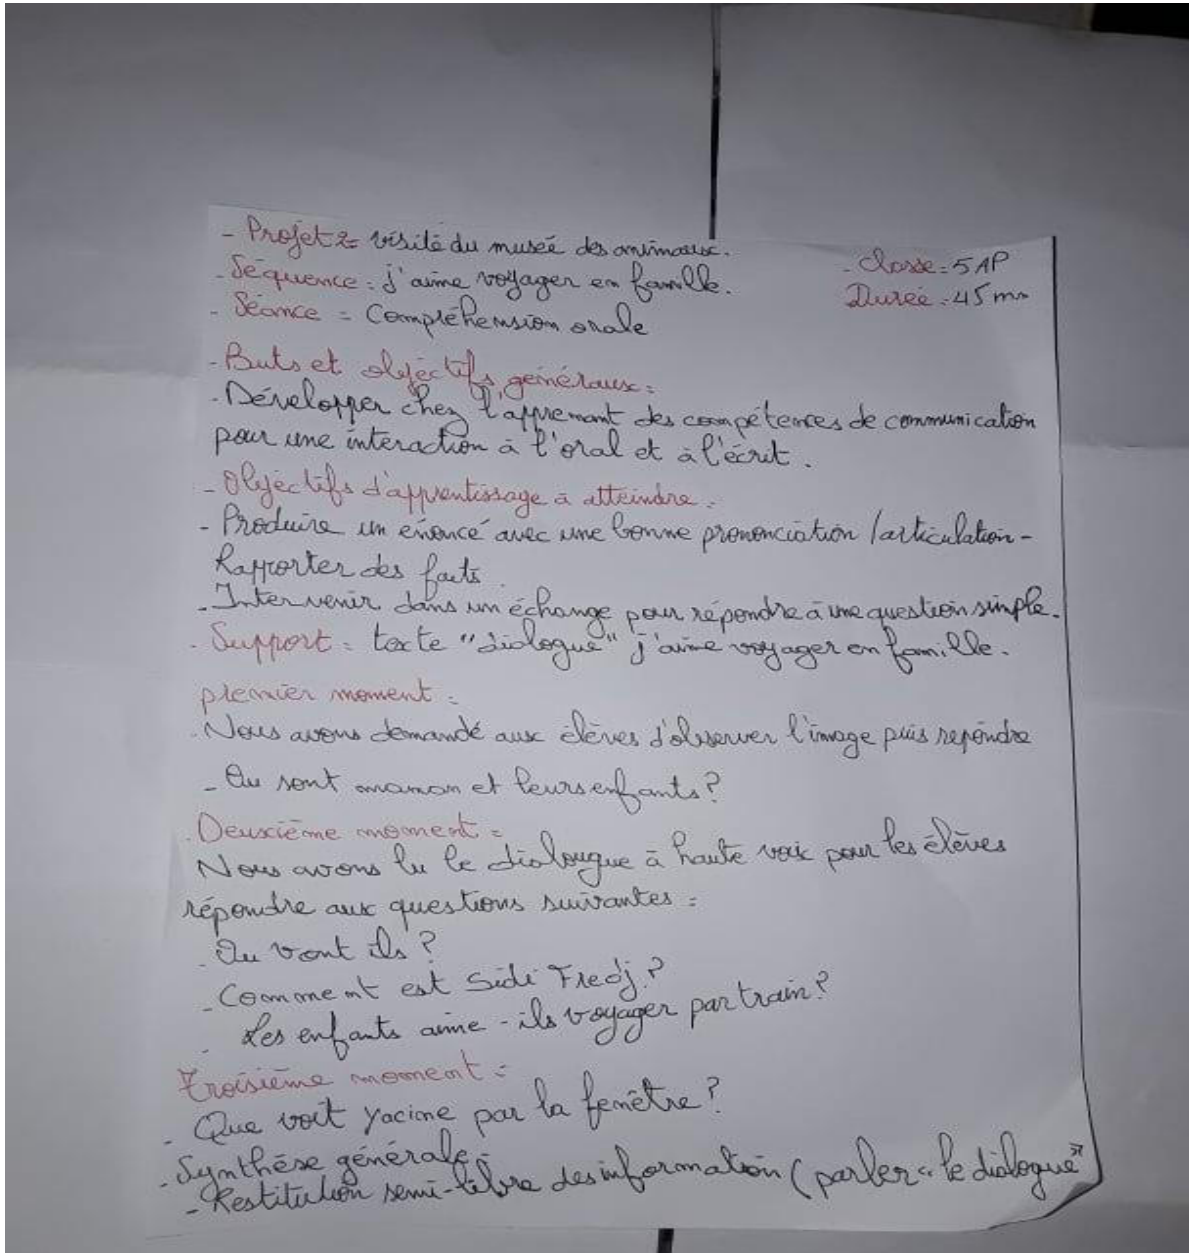 - Projet 2= visite du museé des animaux.
- Classe = 5 AP
- Séquence = j'aime voyager en famille.
Durée = 45 mn
- Séance = Compréhension orale
- Buts et objéctifs généraux =
- Développer chez l'apprenant des compétences de communication
pour une interaction à l'oral et à l'écrit.
- Objéctifs d'apprentissage à atteindre =
- Produire un enoncé avec une bonne prononciation / articulation -
Rapporter des faits.
- Intervenir dans un échange pour répondre à une question simple.
- Support = texte "dialogue" j'aime voyager en famille.
premier moment =
- Nous avons demandé aux élèves d'observer l'image puis repondre
- Ou sont maman et leurs enfants?
. Deuxième moment =
Nous avons lu le dialougue à haute voix pour les élèves
répondre aux questions suivantes =
- Ou vont ils?
- Comment est Sidi Fredj?
. Les enfants aime-ils voyager par train?
Troisième moment =
- Que voit yacine par la fenêtre?
- Synthèse générale =
- Restitution semi-libre des information (parler "le dialogue")